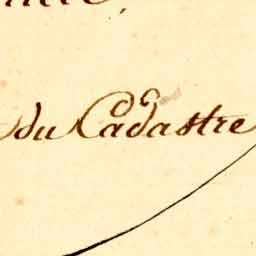 du Cadastre